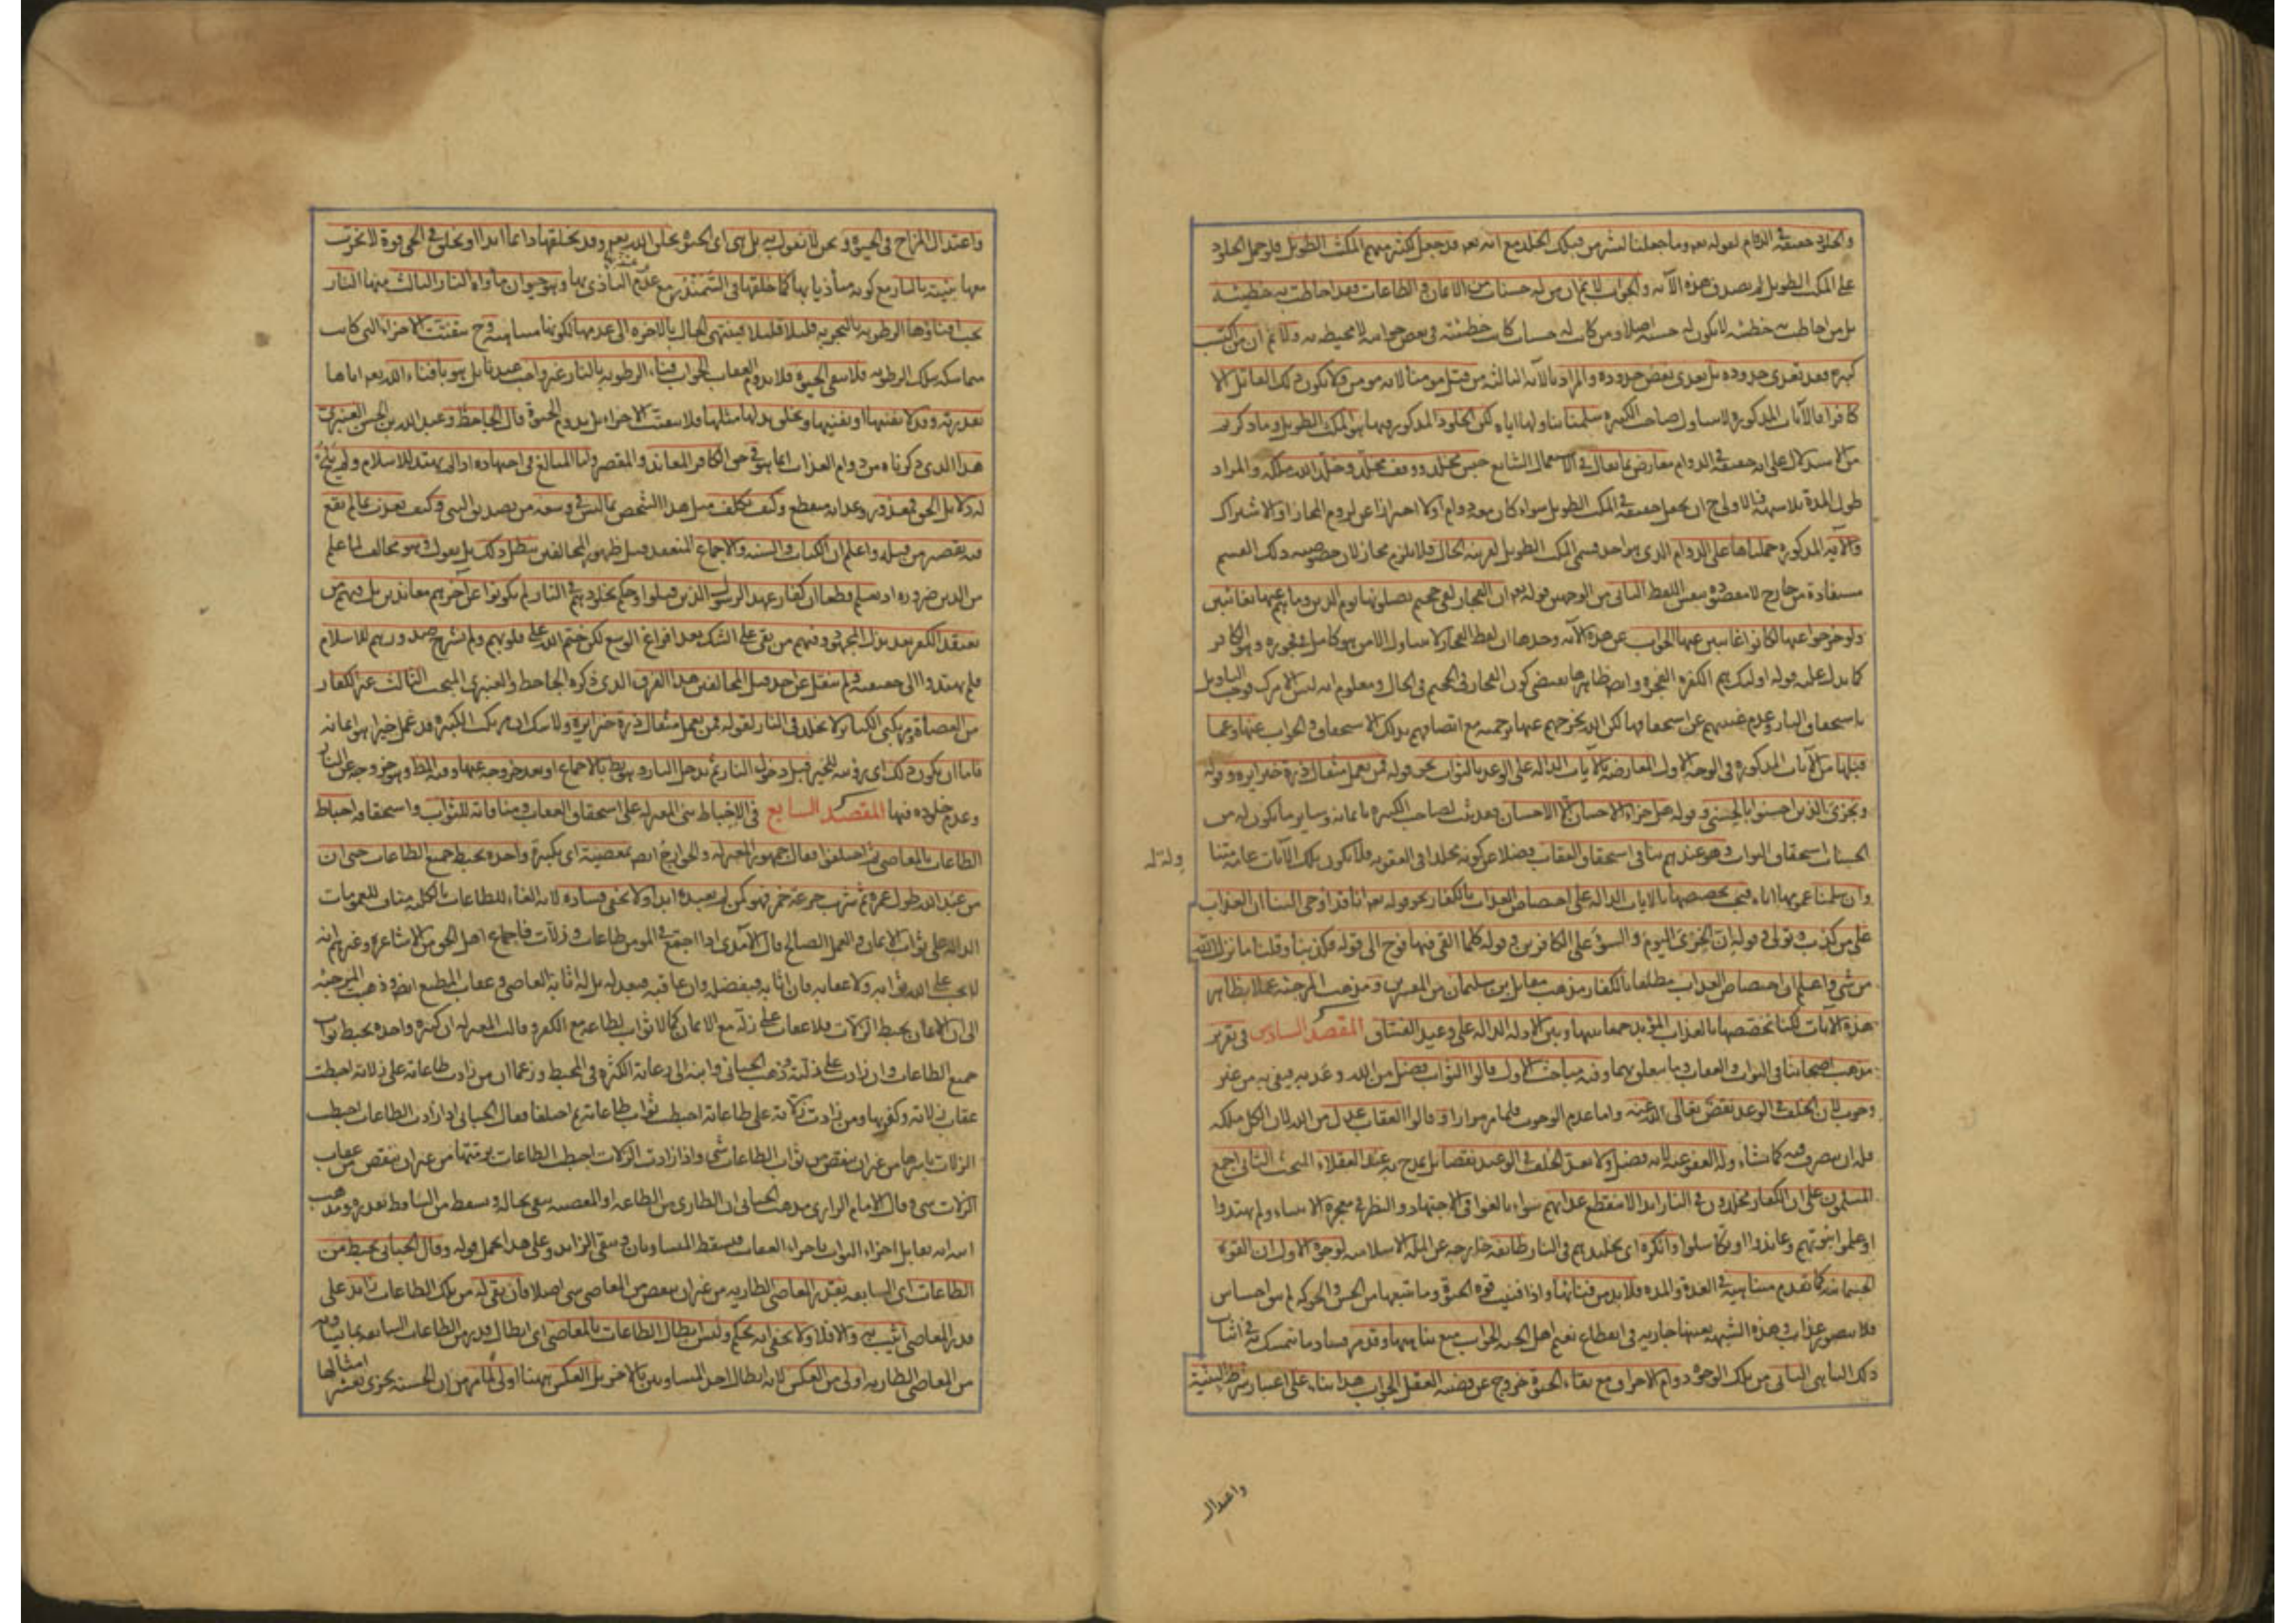 والخلود حقيقة في الدوام لقوله تعه وما جعلنا لبشر من قبلك الخلد مع انه تعه قد جعل لكثير منهم المكث الطويل فلو حمل الخلود
على المكث الطويل لم يصدق هذه الآية والجواب لا نم ان من له حسنات من الايمان والطاعات فقد احاطت به خطيئته
بل من احاطت به خطيئته لا يكون له حسنة اصلا ومن كانت له حسنات كانت خطيئته في بعض جوانبه لا محيطة به ولا نم ان من اكتسب
كبيرة فقد تعدى حدوده بل تعدى بعض حدوده والمراد بالآية الثالثة من قتل مومنا لانه مومن ولا يكون ذلك القاتل الا
كافرا فالآيات المذكورة لا تتناول صاحب الكبيرة سلمنا تناولها اياه لكن الخلود المذكور فيها هو المكث الطويل وما ذكرتم
من الاستدلال على انه حقيقة في الدوام معارض بما يقال في الاستعمال الشايع حبس مخلد ووقف مخلد وخلد الله ملكه والمراد
طول المدة بلا شبهة فالاولى ح ان يجعل حقيقة في المكث الطويل سواء كان معه دوام أولا احترازا عن لزوم المجاز او الاشتراك
والآية المذكورة حملناها على الدوام الذي هو احد قسمي المكث الطويل لقرينة الحال فلا يلزم مجاز لان خصوصية ذلك القسم
مستفادة من خارج لا مقصودة بنفس اللفظ الثاني من الوجهين قوله تعه ان الفجار لفي جحيم يصلونها يوم الدين وما هم عنها بغائبين
ولو خرجوا عنها لكانوا غائبين عنها والجواب عن هذه الآية وحدها ان لفظ الفجار لا يتناول الا من هو كامل في فجوره وهو الكافر
كما يدل عليه قوله اولئك هم الكفرة الفجرة وايضا ظاهرها يقتضي كون الفجار في الجحيم في الحال ومعلوم انه ليس الامر ك فوجب التأويل
باستحقاق النار وعدم غيبتهم عن استحقاقها لكن الله يخرجهم عنها برحمته مع اتصافهم بذلك الاستحقاق والجواب عنها وعما
قبلها من الآيات المذكورة في الوجه الاول المعارضة بالآيات الدالة على الوعد بالثواب نحو قوله فمن يعمل مثقال ذرة خيرا يره وقوله
ويجزي الذين احسنوا بالحسنى وقوله هل جزاء الاحسان الا الاحسان فقد ثبت لصاحب الكبيرة بايمانه وسائر ما يكون له من
الحسنات استحقاق الثواب وهو عندهم ينافي استحقاق العقاب فضلا عن كونه مخلدا في العقوبة فلا يكون تلك الآيات عامة متناولة له
وان سلمنا عمومها اياه فيجب تخصيصها بالآيات الدالة على اختصاص العذاب بالكفار نحو قوله تعه انا قد اوحى الينا ان العذاب
على من كذب وتولى وقوله ان الخزي اليوم والسوء على الكافرين وقوله كلما القي فيها فوج الى قوله فكذبنا وقلنا ما نزل الله
من شيء واعلم ان اختصاص العذاب مطلقا بالكفار مذهب مقاتل بن سليمان من المفسرين ومذهب المرجئة عملا بظاهر
هذه الآيات لكنا نخصصها بالعذاب المؤبد جمعا بينها وبين الادلة الدالة على وعيد الفساق المقصد السادس في تقرير
مذهب اصحابنا في الثواب والعقاب وما يتعلق بهما وفيه مباحث الاول قالوا الثواب فضل من الله وعد به فيفي به من غير
وجوب لان الخلف في الوعد نقص تعالى الله عنه واما عدم الوجوب فلما مر مرارا وقالوا العقاب عدل من الله لان الكل ملكه
فله ان يتصرف فيه كما يشاء وله العفو عنه لانه فضل ولا يعد الخلف في الوعيد نقصا بل يمدح به عند العقلاء البحث الثاني اجمع
المسلمون على ان الكفار مخلدون في النار ابدا لا ينقطع عذابهم سواء بالغوا في الاجتهاد والنظر في معجزة الانبياء ولم يهتدوا
او علموا نبوتهم وعاندوا او تكاسلوا وانكره اي تخليدهم في النار طائفة خارجة عن الملة الاسلامية لوجوه الاول ان القوة
الجسمانية كما تقدم متناهية في العدة والمدة فلا بد من فنائها واذا فنيت قوة الحيوة وما يتبعها من الحس والحركة لم يبق احساس
فلا يتصور عذاب وهذه الشبهة بعينها جارية في انقطاع نعيم اهل الجنة الجواب منع تناهيها وقد مر فساد ما تمسك به في اثبات
ذلك التناهي الثاني من تلك الوجوه دوام الاحراق مع بقاء الحيوة خروج عن قضية العقل الجواب هذا بناء على اعتبار شرط البنية
واعتدال
واعتدال المزاج في الحيوة ونحن لا نقول به بل هي اي الحيوة بخلق الله تعه وقد يخلقها دائما ابدا او يخلق في الحي قوة لا يخرب
معها بنيته بالنار مع كونه متأذيا بها كما خلقها في السمندر مع عدم التأذي بها وهو حيوان مأواه النار الثالث منها النار
يجب افناؤها الرطوبة بالتجربة قليلا قليلا فينتهي الحال بالاخرة الى عدمها لكونها متناهية وح تتفتت الاجزاء التي كانت
متماسكة بتلك الرطوبة فلا يبقى الحيوة فلا يدوم العقاب الجواب فناء الرطوبة بالنار غير واجب عندنا بل هو بافناء الله تعه اياها
بقدرته وقد لا يفنيها او يفنيها ويخلق بدلها مثلها فلا يتفتت الاجزاء بل يدوم الحيوة قال الجاحظ وعبد الله بن الحسن العنبري
هذا الذي ذكرناه من دوام العذاب انما هو في حق الكافر المعاند والمقصر واما المبالغ في اجتهاده اذا لم يهتد للاسلام ولم يلح
له دلايل الحق فمعذور وعذابه منقطع وكيف يكلف مثل هذا الشخص بما ليس في وسعه من تصديق النبي وكيف يعذب بما لم يقع
فيه تقصير من قبله واعلم ان الكتاب والسنة والاجماع المنعقد قبل ظهور المخالفين يبطل ذلك بل نقول وهو مخالف لما علم
من الدين ضرورة اذ يعلم قطعا ان كفار عهد الرسول الذين قتلوا وحكم بخلودهم في النار لم يكونوا عن اخرهم معاندين بل فيهم من
يعتقد الكفر بعد بذل المجهود وفيهم من بقي على الشك بعد افراغ الوسع لكن ختم الله على قلوبهم ولم يشرح صدورهم للاسلام
فلم يهتدوا الى حقيقته ولم ينقل عن احد قبل المخالفين هذا الفرق الذي ذكره الجاحظ والعنبري المبحث الثالث غير الكفار
من العصاة ومرتكبي الكبائر لا يخلد في النار لقوله فمن يعمل مثقال ذرة خيرا يره ولا شك ان مرتكب الكبيرة قد عمل خيرا هو ايمانه
فاما ان يكون ذلك اي رؤيته للخير قبل دخول النار ثم يدخل النار وهو بط بالاجماع او بعد خروجه عنها وفيه المط وهو خروجه عن النار
وعدم خلوده فيها المقصد السابع في الاحباط بنى المعتزلة على استحقاق العقاب ومنافاته للثواب واستحقاقه احباط
الطاعات بالمعاصي ثم اختلفوا فقال جمهور المعتزلة والخوارج ايضا بمعصية اي بكبيرة واحدة يحبط جميع الطاعات حتى ان
من عبد الله طول عمره ثم شرب جرعة خمر فهو كمن لم يعبده ابدا ولا يخفى فساده لانه الغاء للطاعات بالكلية مناف للعمومات
الدالة على ثواب الايمان والعمل الصالح قال الآمدي اذا اجتمع في المومن طاعات وزلات فاجماع اهل الحق من الاشاعرة وغيرهم انه
لا يجب على الله ثوابه ولا عقابه فان اثابه فبفضله وان عاقبه فبعدله بل له اثابة العاصي وعقاب المطيع ايضا وذهب المرجئة
الى ان الايمان يحبط الزلات فلا عقاب على زلة مع الايمان كما لا ثواب لطاعة مع الكفر وقالت المعتزلة ان كبيرة واحدة يحبط ثواب
جميع الطاعات وان زادت على زلته وذهب الجبائي وابنه الى رعاية الكثرة في المحبط وزعما ان من زادت طاعاته على زلاته احبطت
عقاب زلاته وكفرتها ومن زادت زلاته على طاعاته احبطت ثواب طاعاته ثم اختلفا فقال الجبائي اذا زادت الطاعات احبطت
الزلات باسرها من غير ان ينقص من ثواب الطاعات شيء واذا زادت الزلات احبطت الطاعات برمتها من غير ان ينقص من عقاب
الزلات شيء وقال الامام الرازي مذهب الجبائي ان الطاري من الطاعة او المعصية يبقى بحاله ويسقط من السابق بقدره ومذهب
ابنه انه يقابل اجزاء الثواب باجزاء العقاب فيسقط المتساويان ويبقى الزايد وعلى هذا يحمل قوله وقال الجبائي يحبط من
الطاعات اي السابقة بقدر المعاصي الطارية من غير ان ينقص من المعاصي شيء اصلا فان بقي له من تلك الطاعات زايد على
قدر المعاصي اثيب به والا فلا ولا يخفى انه تحكم وليس ابطال الطاعات بالمعاصي اي ابطال قدر من الطاعات السابقة بما يساويه
من المعاصي الطارية اولى من العكس لانه ابطال احد المتساويين بالاخر بل العكس ههنا اولى لما مر من ان الحسنة يجزى بعشر امثالها